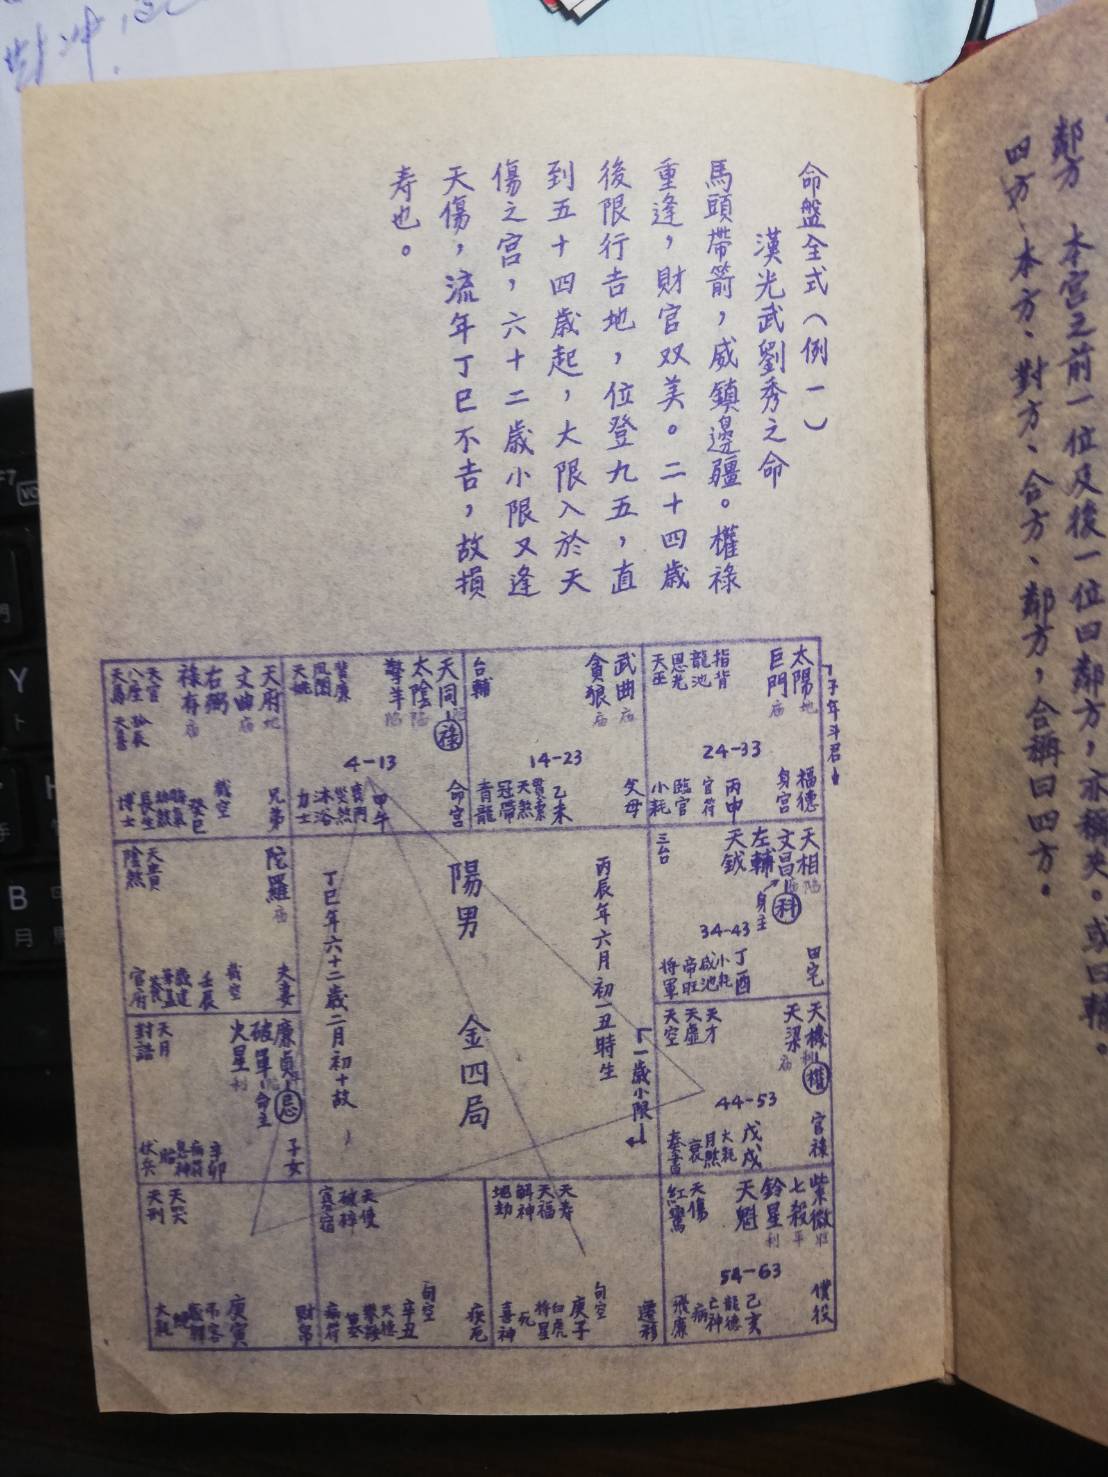 鄰方 本宮之前一位及後一位曰鄰方，亦稱夾。或曰輔。
四方、本方、對方、合方、鄰方，合稱曰四方。
命盤全式（例一）
漢光武劉秀之命
馬頭帶箭，威鎮邊疆。權祿
重逢，財官双美。二十四歲
後限行吉地，位登九五，直
到五十四歲起，大限入於天
傷之宮，六十二歲小限又逢
天傷，流年丁巳不吉，故損
寿也。
子年斗君
太陽地
巨門廟
指背
龍池
恩光
天巫
24-33
福德
身宮
丙申
官符
臨官
小耗
武曲廟
貪狼廟
台輔
14-23
父母
乙未
貫索
天煞
冠帶
青龍
天同陷祿
太陰陷
擎羊陷
蜚廉
鳳閣
天姚
4-13
命宮
甲午
喪門
災煞
沐浴
力士
天府地
文曲廟
右弼
祿存廟
天官
八座
天馬
孤辰
天喜
截空
兄弟
癸巳
晦氣
劫煞
長生
博士
天相陷
文昌廟科
左輔
天鉞
三台
身主
34-43
田宅
丁酉
小耗
咸池
帝旺
將軍
陀羅廟
天貴
陰煞
截空
夫妻
壬辰
歲建
華蓋
養
官府
陽男 金四局
丙辰年六月初一丑時生
丁巳年六十二歲二月初十故
一歲小限
天機利權
天梁廟
天才
天虛
天空
44-53
官祿
戊戌
大耗
月煞
衰
奏書
廉貞平忌
破軍陷命主
火星利
天月
封誥
子女
辛卯
病符
息神
胎
伏兵
紫微旺
七殺平
鈴星利
天魁
天傷
紅鸞
54-63
僕役
己亥
龍德
亡神
病
飛廉
天寿
天福
解神
地劫
旬空
遷移
庚子
白虎
將星
死
喜神
天使
破碎
寡宿
旬空
疾厄
辛丑
天德
攀鞍
墓
病符
天哭
天刑
財帛
庚寅
弔客
歲驛
絕
大耗